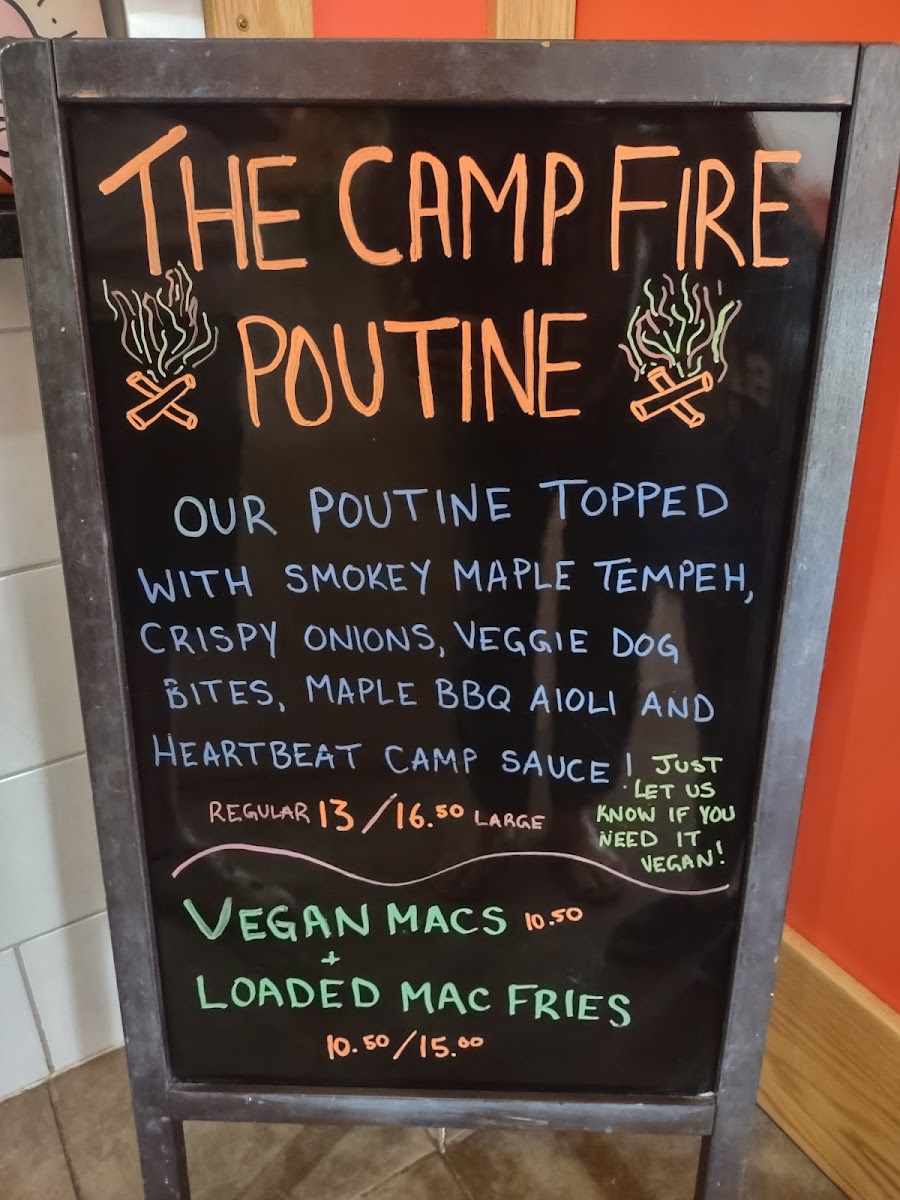 THE CAMP FIRE
POUTINE
OUR POUTINE TOPPED
WITH SMOKEY MAPLE TEMPEH,
CRISPY ONIONS, VEGGIE DOG
BITES, MAPLE BBQ AIOLI AND
HEARTBEAT CAMP SAUCE!
JUST
LET US
KNOW IF YOU
NEED IT
VEGAN!
REGULAR 13/16.50 LARGE
VEGAN MACS 10.50
+
LOADED MAC FRIES
10.50/15.00